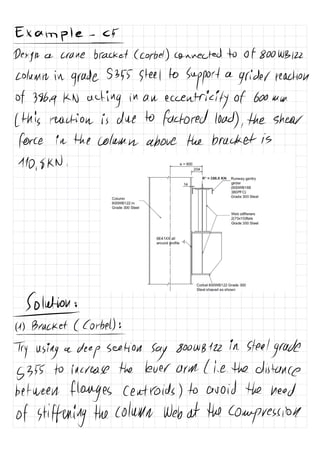 Example - c5
Design a crane bracket (corbel) connected to of 800WB122
column in grade S355 steel to support a grider reaction
of 386,9 KN acting in an eccentricity of 600 mm
(this reaction is due to factored load), the shear
force in the column above the bracket is
110,8 KN.
e = 600
204
R* = 386.9 KN
74
Runway gantry
girder
Grade 350 Steel
Column
800WB122 in
Grade 350 Steel
Web stiffeners
Grade 350 Steel
6E41XX all
around profile
Corbel 800WB122 Grade 350
Steel shaped as shown
Solution:
(1) Bracket (Corbel):
Try using a deep section say 800WB122 in steel grade
S355 to increase the lever arm (i.e the distance
between flanges centroids) to avoid the need
of stiffening the column web at the compression